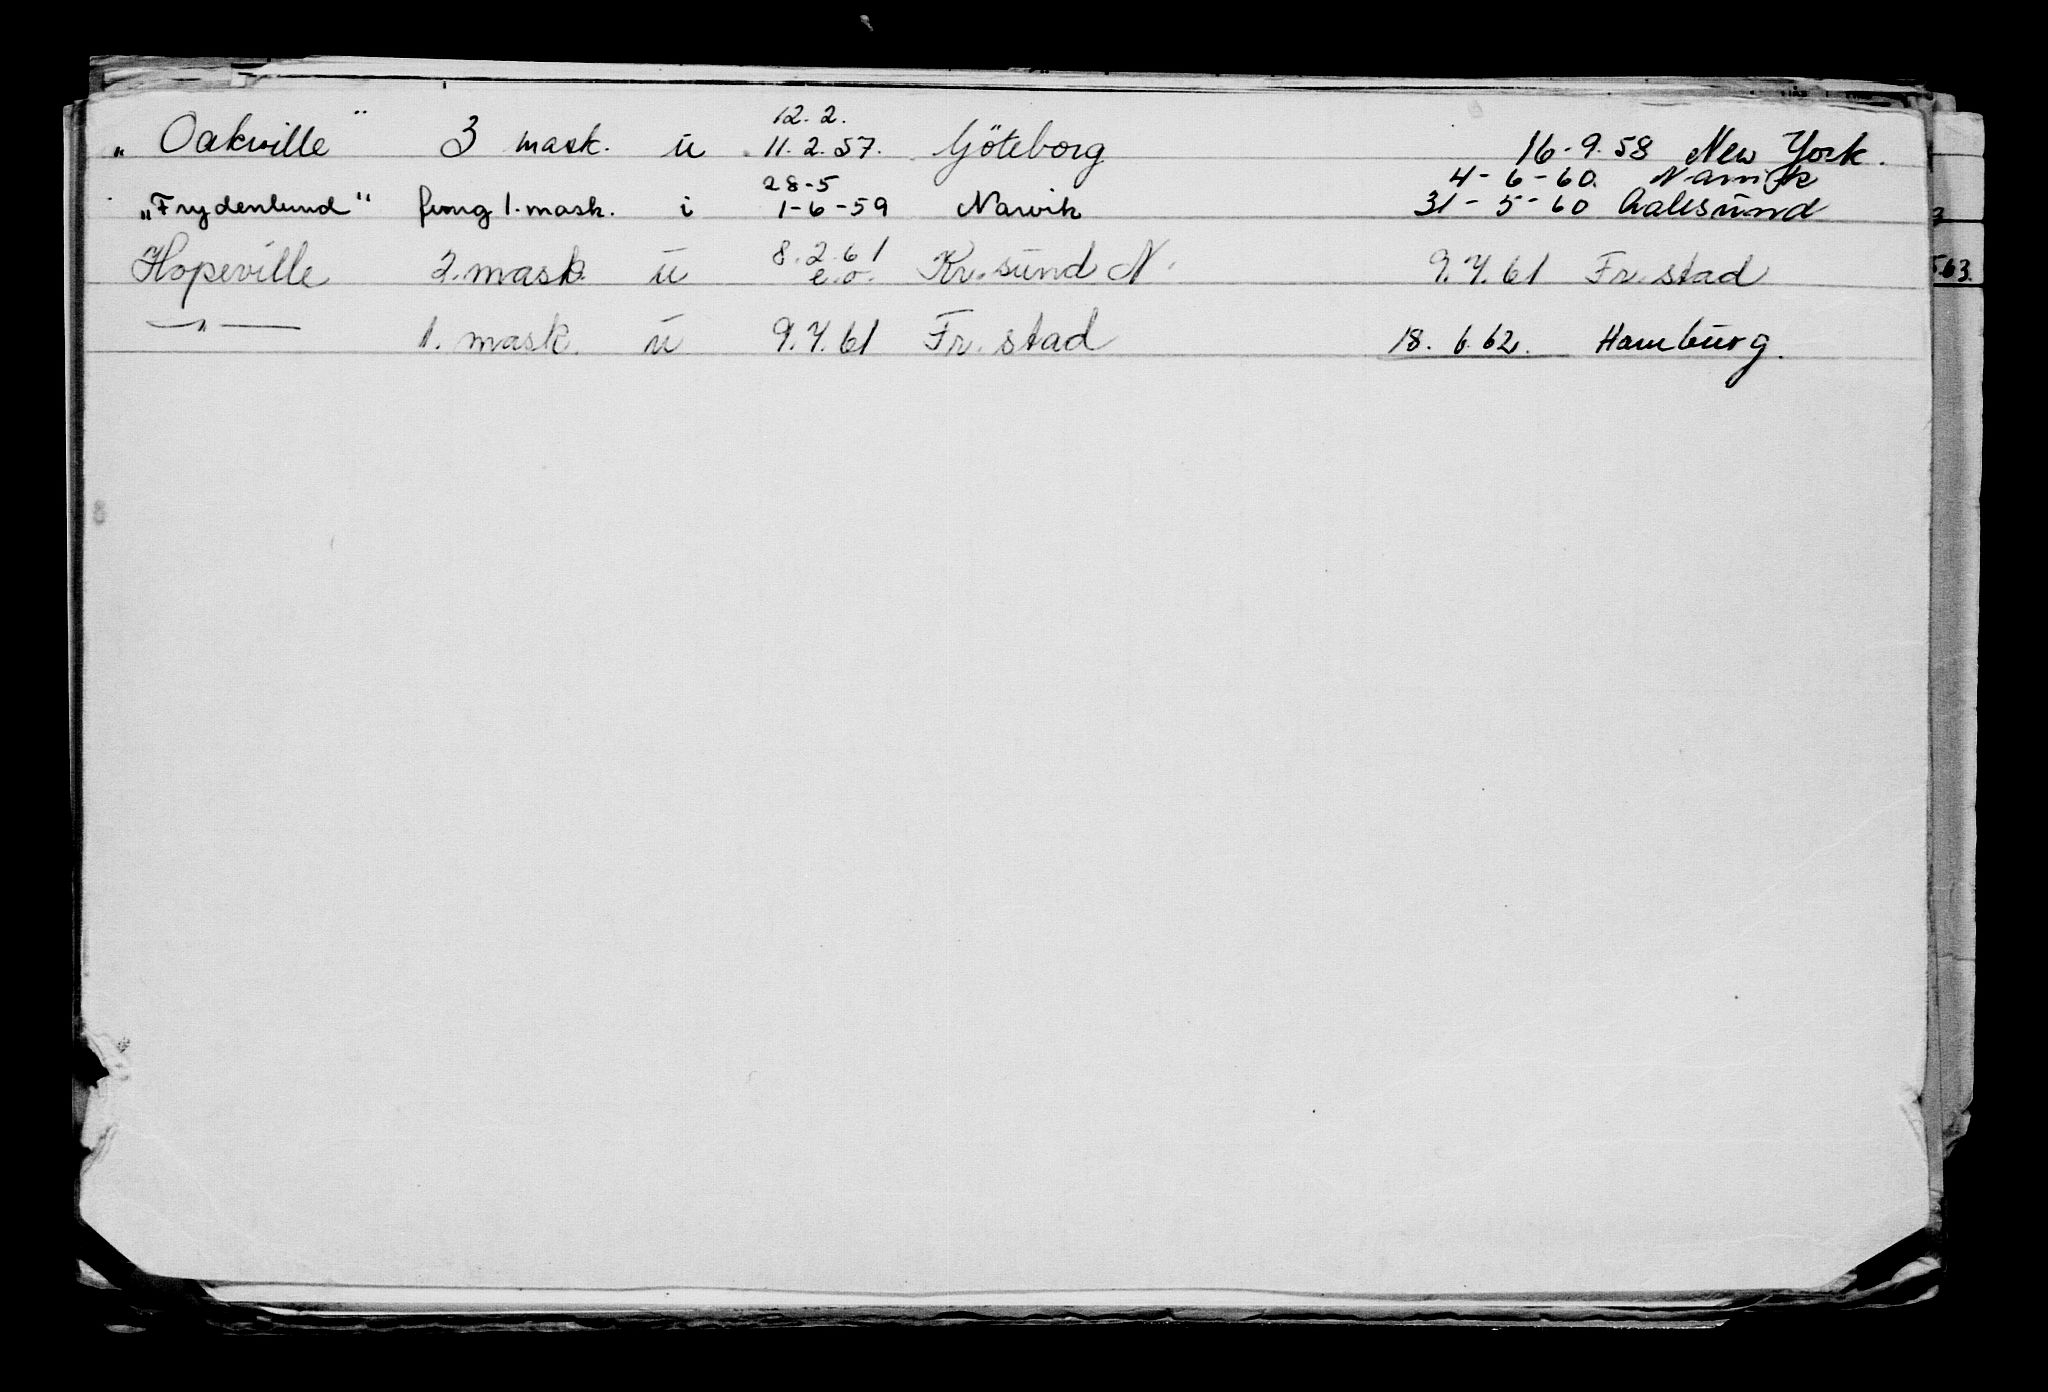 12.2.
„Oakville" 3 mask. u 11.2.57. Göteborg 16-9.58 New York.
28-5 4-6-60. Narvik
„Frydenlund" fung 1. mask. i 1-6-59 Narvik 31-5-60 Aalesund
8.2.61
Hopeville 2. mask. u e.o. Kr.sund N. 9.4.61 Fr.stad
—"— 1. mask. u 9.4.61 Fr.stad 18.6.62. Hamburg.